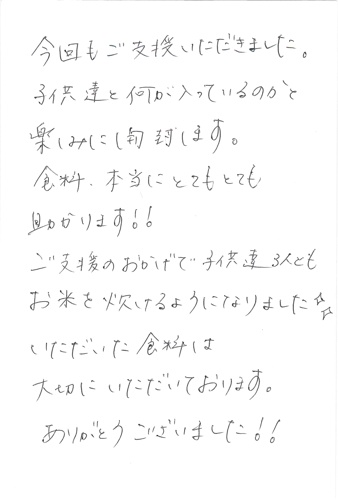 今回もご支援いただきました。
子供達と何が入っているのかと
楽しみにし開封します。
食料、本当にとてもとても
助かります!!
ご支援のおかげで子供達3人とも
お米を炊けるようになりました☆☆
いただいた食料は
大切にいただいております。
ありがとうございました!!